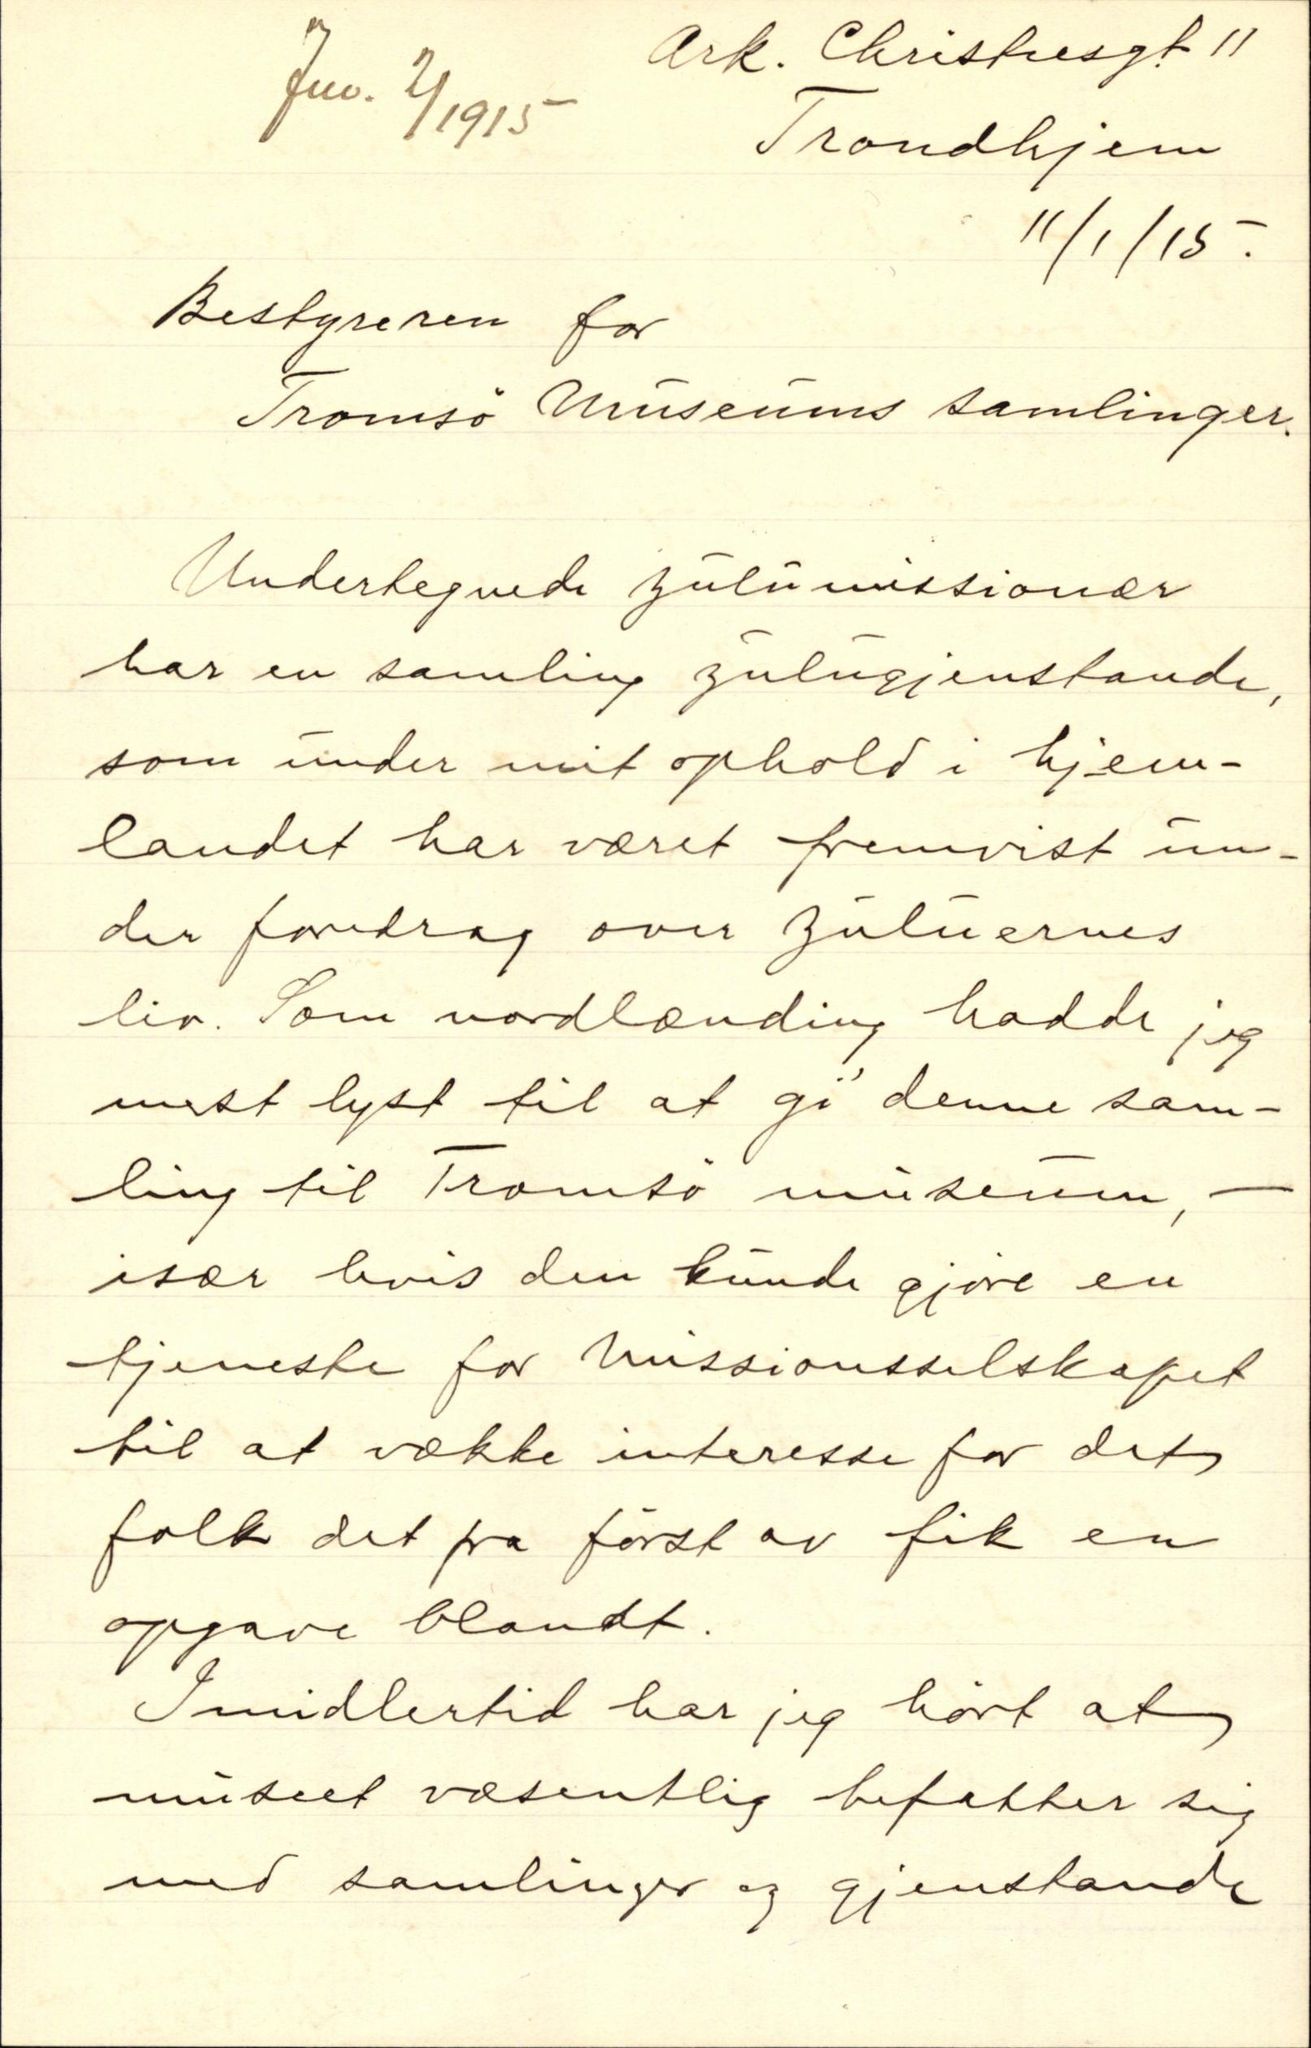 Jnv. 2/1915
Ark. Christiesgt. 11
Trondhjem
11/1/15.
Bestyreren for
Tromsö Museums samlinger.
Undertegnede zulumissionær
har en samling zulugjenstande,
som under mit ophold i hjem-
landet har været fremvist un-
der foredrag over zuluernes
liv. Som nordlænding hadde jeg
mest lyst til at gi denne sam-
ling til Tromsö museum, —
især hvis den kunde gjöre en
tjeneste for Missionsselskapet
til at vække interesse for det
folk det fra först av fik en
opgave blandt.
Imidlertid har jeg hört at
museet væsentlig befatter sig
med samlinger og gjenstande